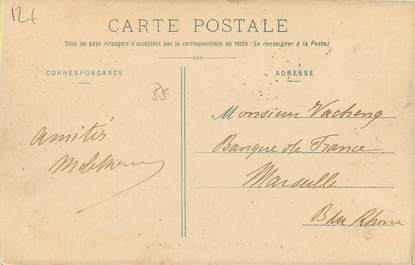 12€
CARTE POSTALE
Tous les pays étrangers n'acceptent pas la correspondance au recto (Se renseigner à la Poste)
CORRESPONDANCE
ADRESSE
35
Amitiés
Monsieur Vacheng
Banque de France
Marseille
B du Rhone